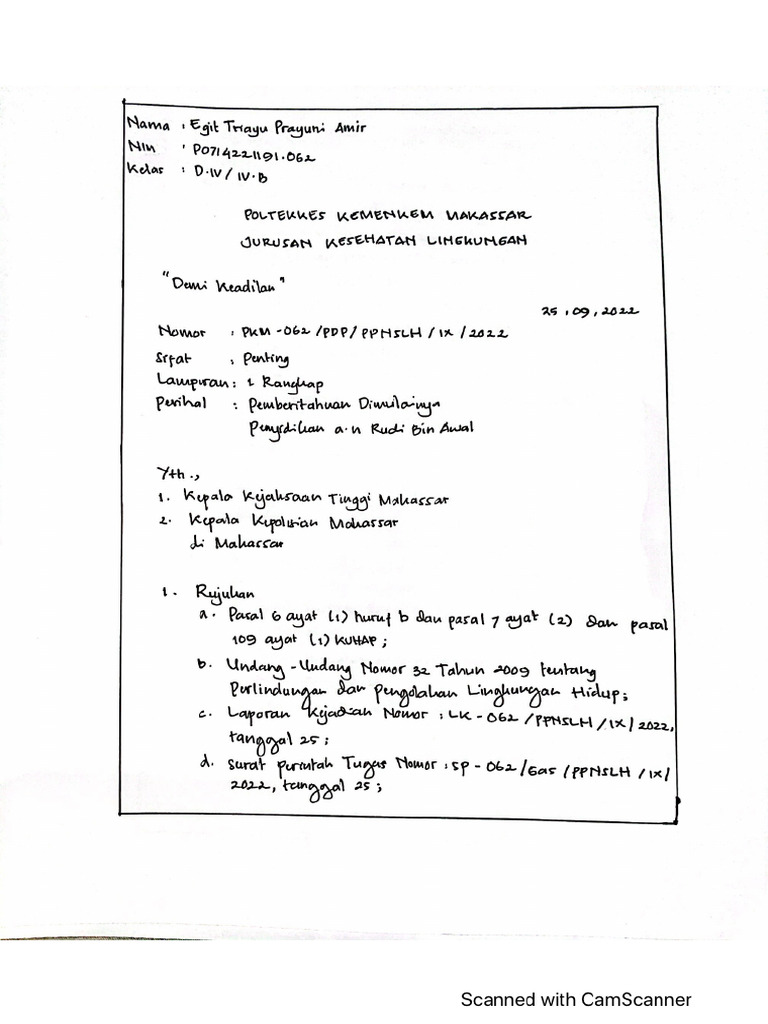 Nama : Egit Triayu Prayuni Amir
Nim : P0714221191.062
Kelas : D.IV / IV.B
POLTEKKES KEMENKEM MAKASSAR
JURUSAN KESEHATAN LINGKUNGAN
"Demi Keadilan"
25 , 09 , 2022
Nomor : PKM -062 /PDP/ PPNSLH / IX / 2022
Sifat : Penting
Lampiran : 1 Rangkap
Perihal : Pemberitahuan Dimulainya
Penyidikan a.n Rudi Bin Awal
Yth.,
1. Kepala Kejaksaan Tinggi Makassar
2. Kepala Kepolisian Makassar
di Makassar
1. Rujukan
a. Pasal 6 ayat (1) huruf b dan pasal 7 ayat (2) dan pasal
109 ayat (1) KUHAP ;
b. Undang -Undang Nomor 32 Tahun 2009 tentang
Perlindungan dan Pengolahan Lingkungan Hidup;
c. Laporan Kejadian Nomor : LK - 062 /PPNSLH / IX / 2022,
tanggal 25 ;
d. Surat perintah Tugas Nomor : SP - 062/Gas /PPNSLH / IX/
2022, tanggal 25 ;
Scanned with CamScanner